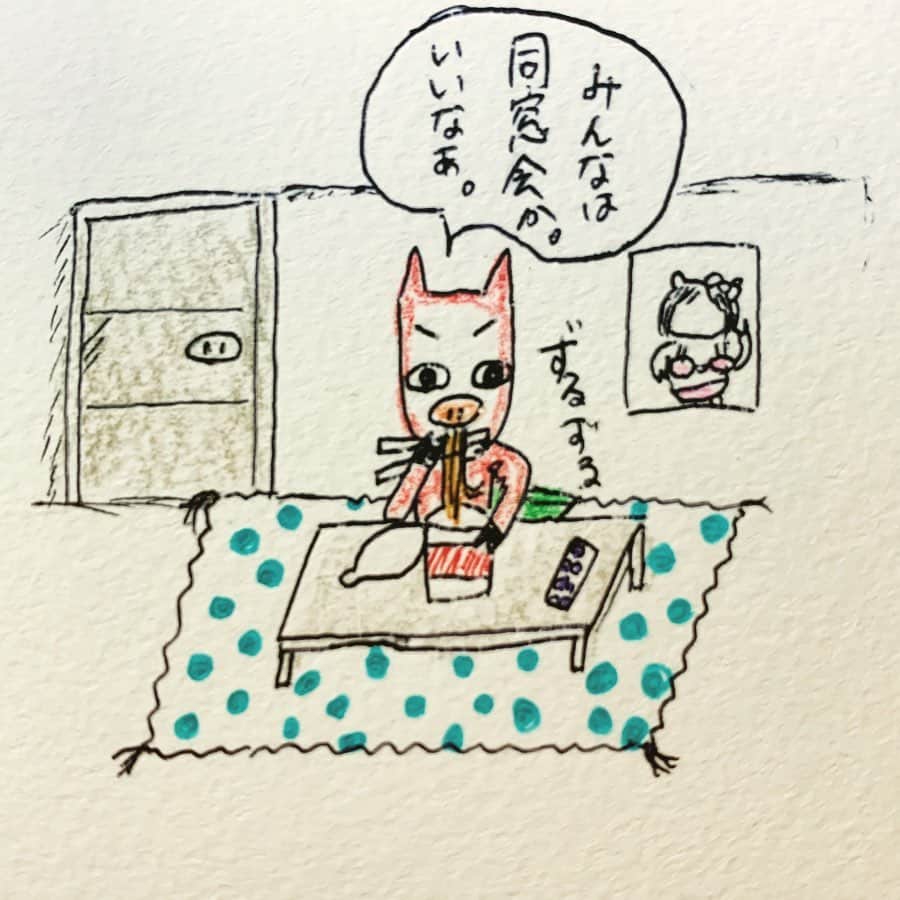 みんなは
同窓会か。
いいなぁ。
ずるずる